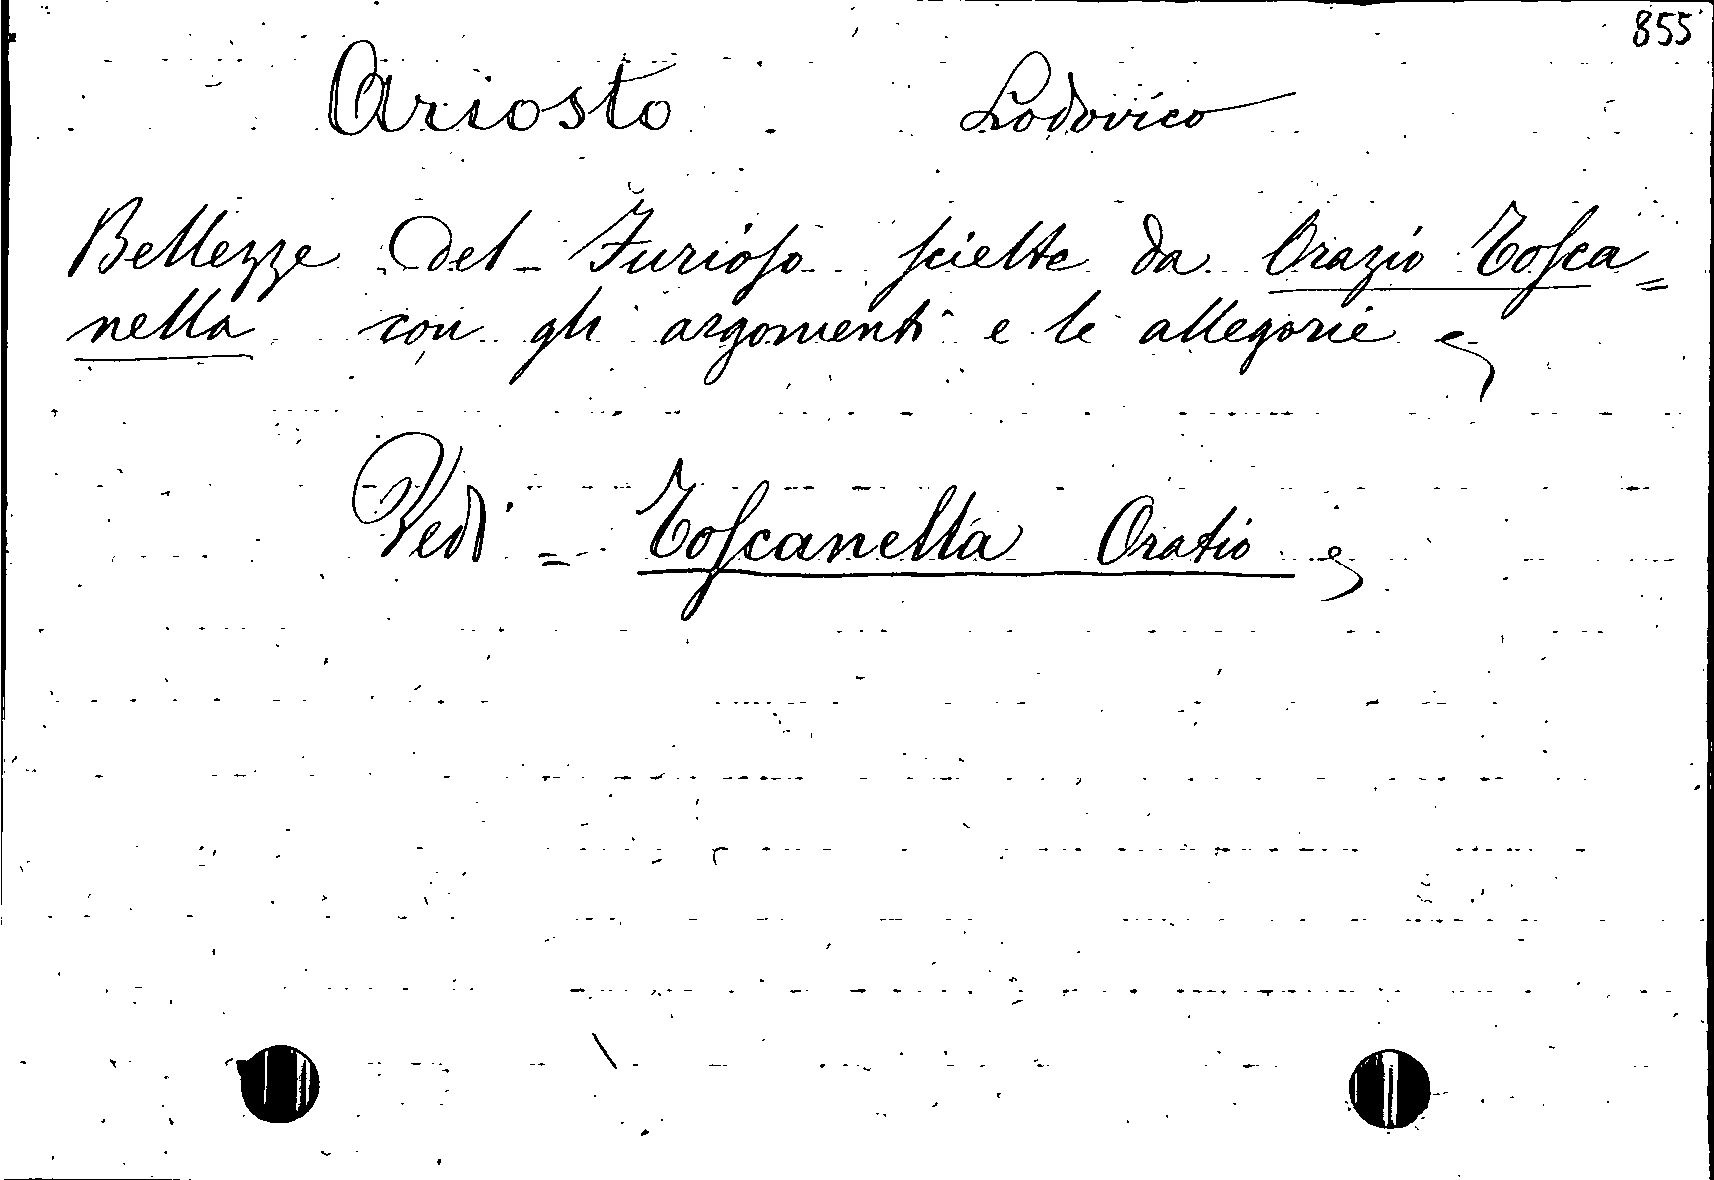 855
Ariosto Lodovico
Bellezze del Furioſo ſcielte da Orazio Toſca=
nella con gli argomenti e le allegorie
Vedi = Toſcanella Oratio